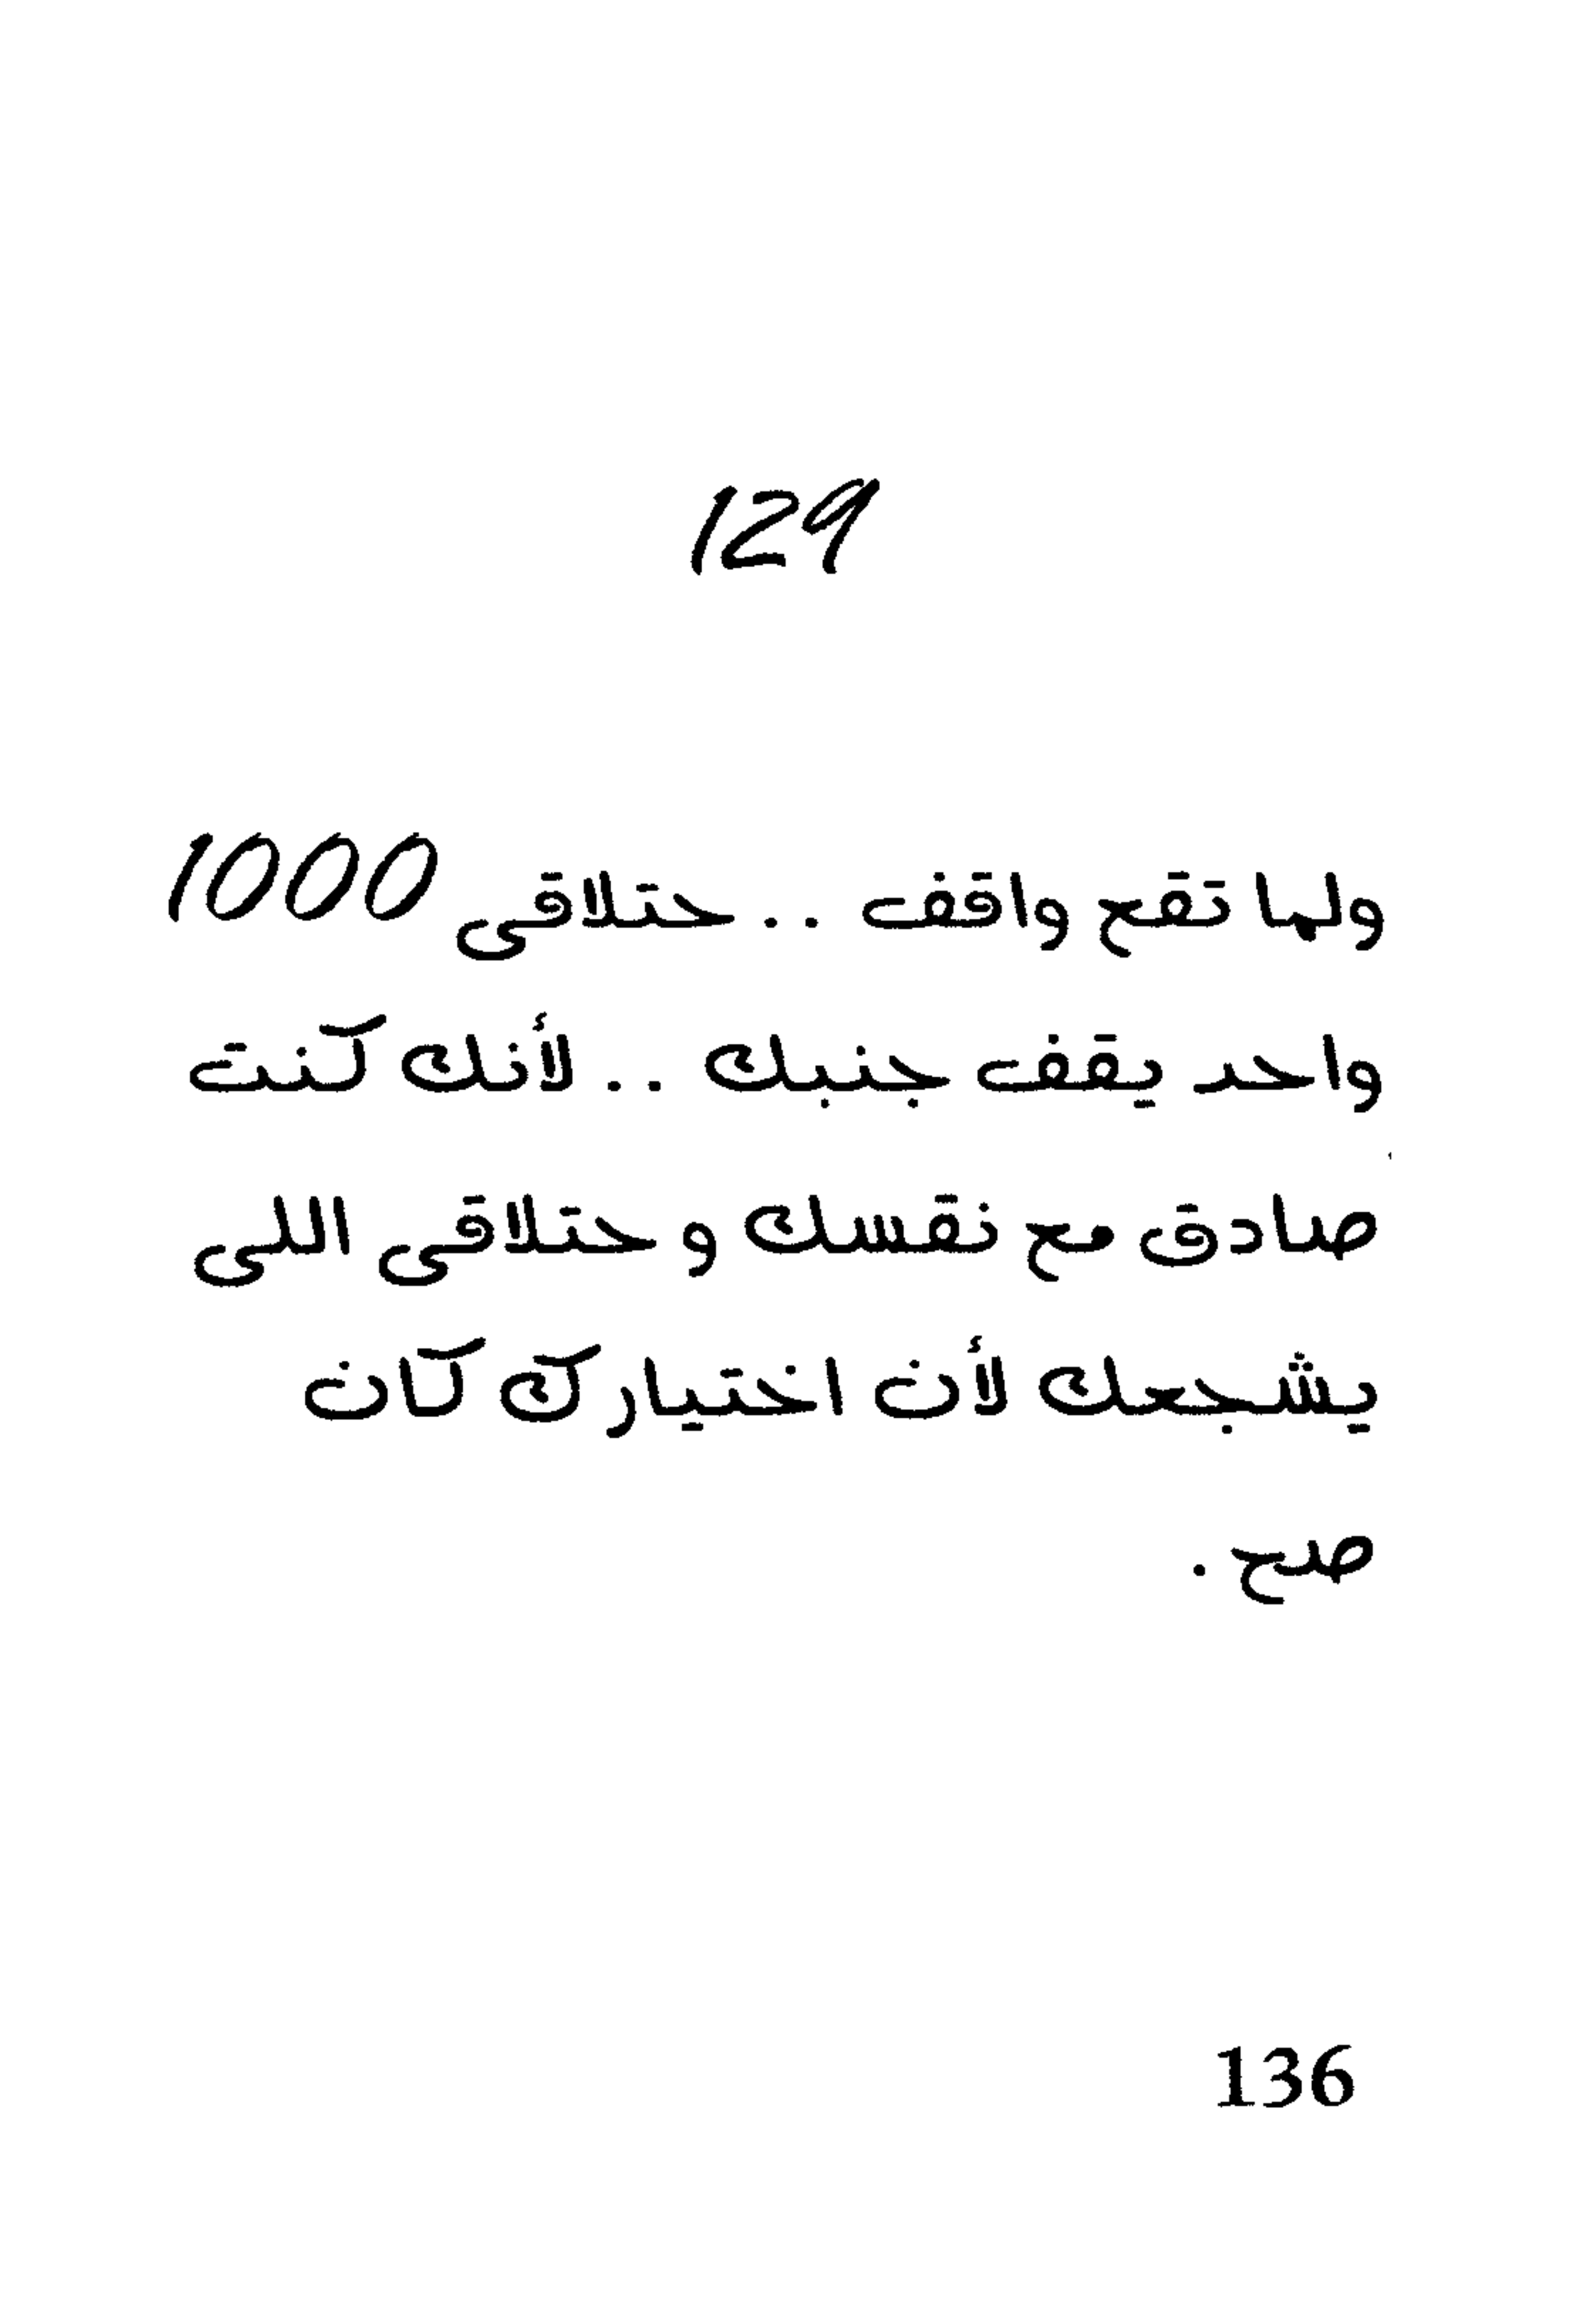 129
ولما تقع واقف .. حتلاقى 1000
واحد يقف جنبك .. لأنك كنت
صادق مع نقسك و حتلاقى اللى
يشجعك لأن اختيارك كان
صح .
136